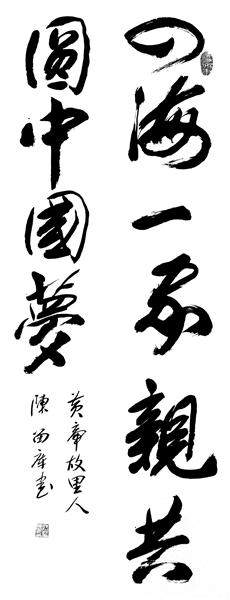 四海一家親共
圓中國夢
黄帝故里人
陳西庫书